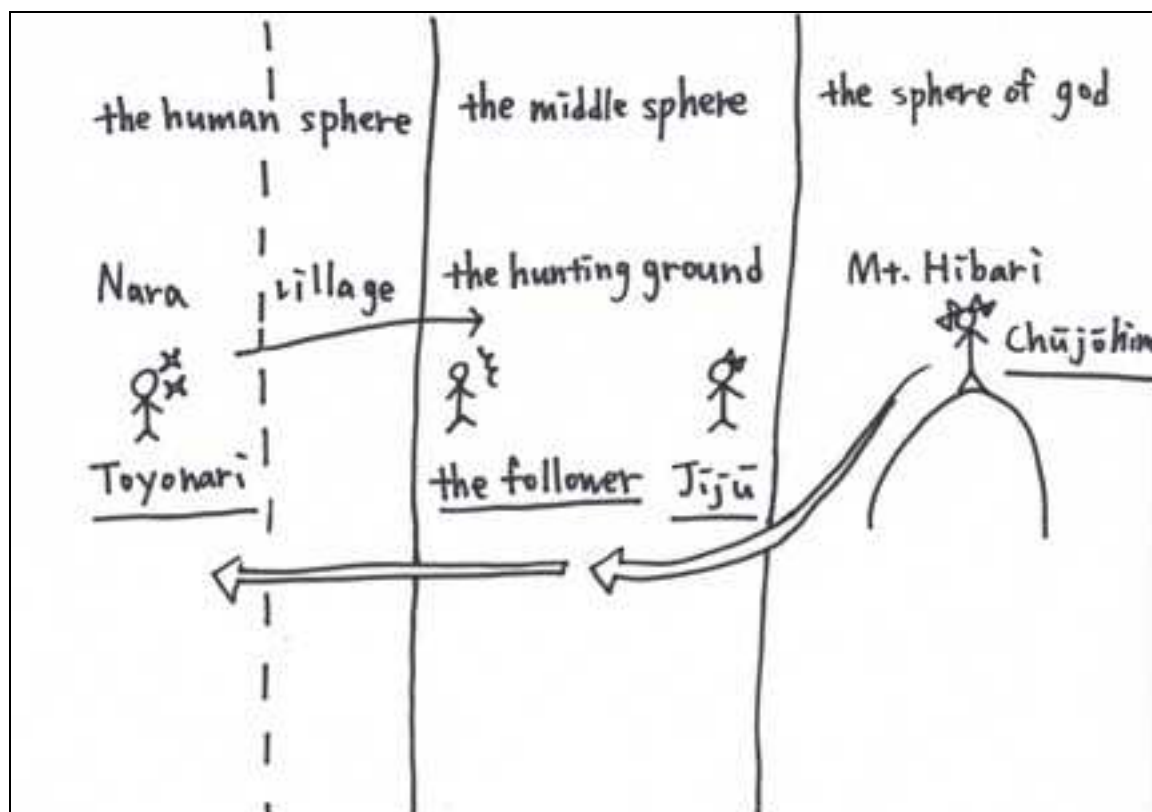 the human sphere
the middle sphere
the sphere of god
Nara
village
the hunting ground
Mt. Hibari
Chūjōhim
Toyonari
the follower
Jijū